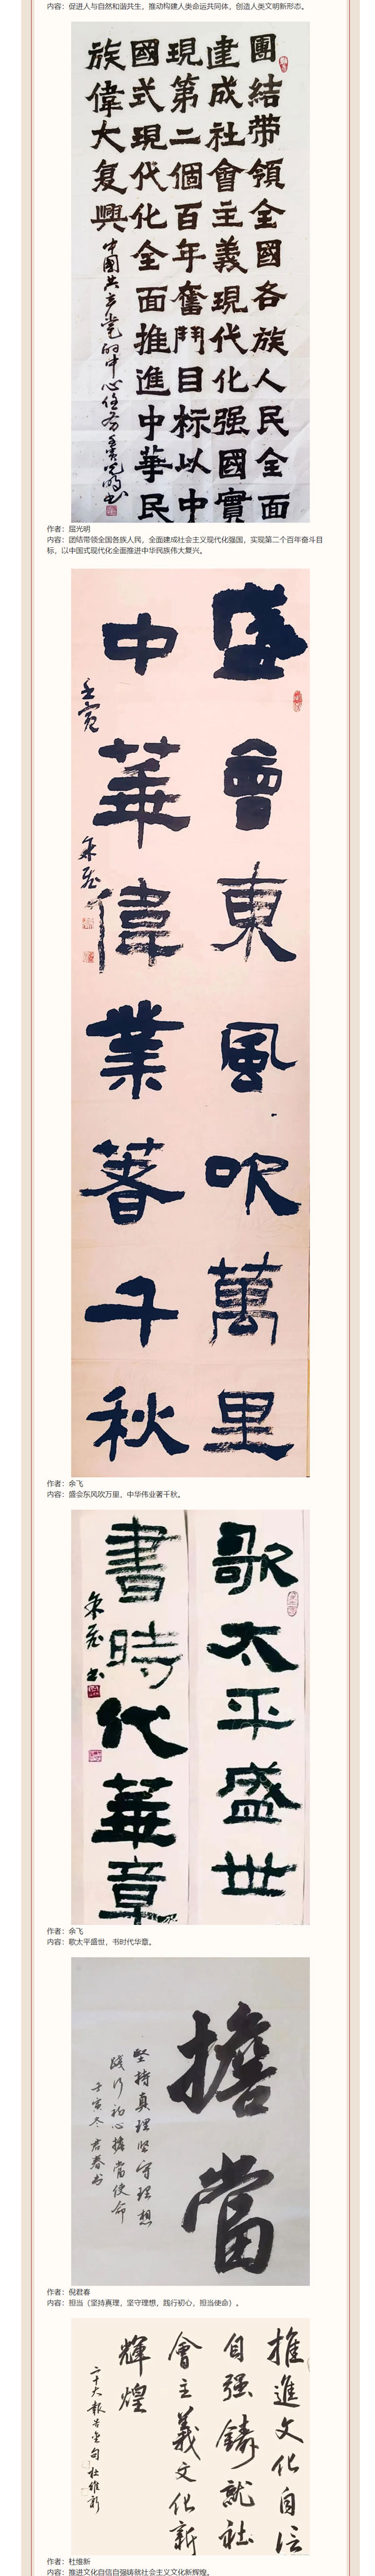 内容：促进人与自然和谐共生，推动构建人类命运共同体，创造人类文明新形态。
團結带領全國各族人民全面
建成社會主義現代化强國實
現第二個百年奮鬥目标以中
國式現代化全面推進中華民
族偉大复興
中國共产党的中心任务
作者：屈光明
内容：团结带领全国各族人民，全面建成社会主义现代化强国，实现第二个百年奋斗目
标，以中国式现代化全面推进中华民族伟大复兴。
盛會東風吹萬里
中華偉業著千秋
壬寅
余飞
作者：余飞
内容：盛会东风吹万里，中华伟业著千秋。
歌太平盛世
書時代華章
余飞书
作者：余飞
内容：歌太平盛世，书时代华章。
擔當
堅持真理坚守理想
践行初心擔當使命
壬寅冬君春书
作者：倪君春
内容：担当（坚持真理，坚守理想，践行初心，担当使命）。
推進文化自信
自强鑄就社
會主義文化新
輝煌
二十大報告金句杜维新
作者：杜维新
内容：推进文化自信自强铸就社会主义文化新辉煌。